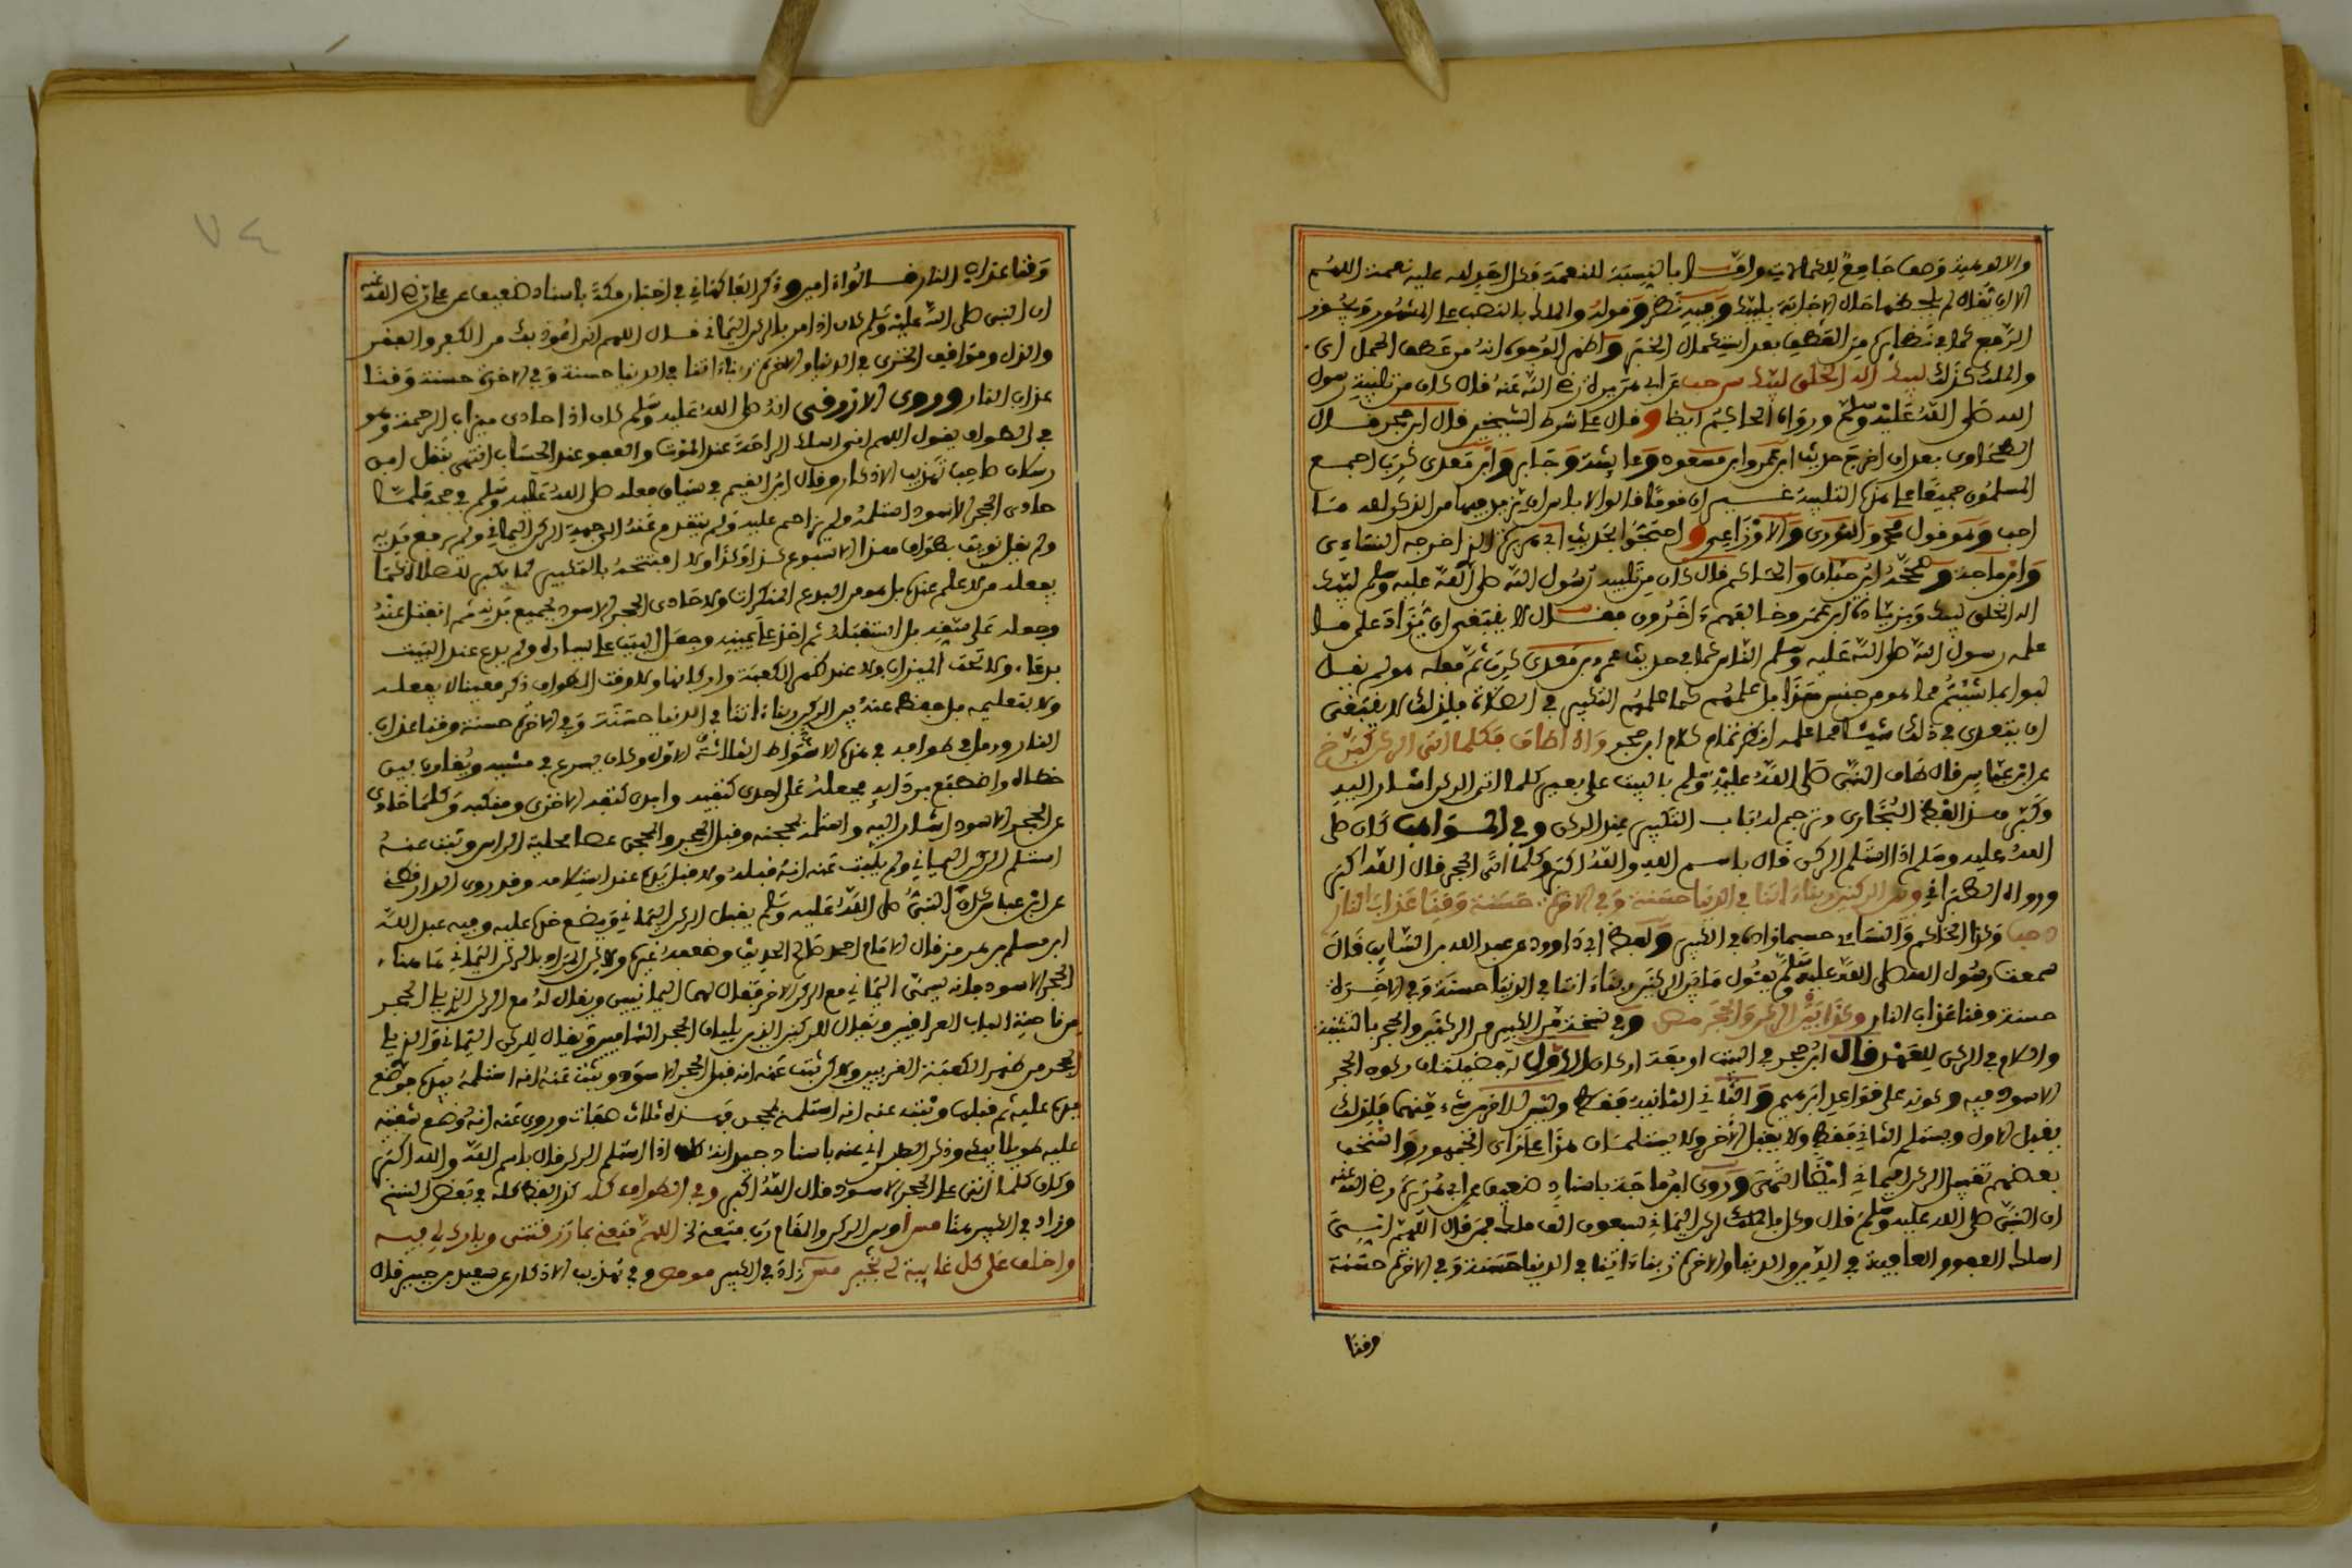 الرفع كما في نظائره من العطف بعد استكمال الخبر واظهر الوجوه انه من عطف الجمل اى
والملك كذلك لبيك اله الحق لبيك س حب عن ابى هريرة رضى الله عنه قال كان من تلبية رسول
الله صلى الله عليه وسلم ورواه الحاكم ايضا وقال على شرط الشيخين قال ابن حجر قال
الطحاوى بعد ان اخرج حديث ابن عمر وابن مسعود وعايشة وجابر وابن معدى كرب اجمع
المسلمون جميعا على هذه التلبية غير ان قوما قالوا لا باس ان يزيد فيها من الذكر لله ما
احب وهو قول محمد والثورى والاوزاعى واحتجوا بحديث ابى هريرة الذى اخرجه النساءى
وابن ماجة وصححه ابن حبان والحاكم قال كان من تلبية رسول الله صلى الله عليه وسلم لبيك
اله الحق لبيك وبزيادة ابن عمر وخالفهم ءاخرون فقال لا ينبغى ان يزاد على ما
علمه رسول الله صلى الله عليه وسلم الناس كما في حديث عمرو بن معدى كرب ثم فعله هو ولم يقل
لبوا بما شئتم مما هو من جنس هذا بل علمهم كما علمهم التكبير في الصلاة فلذلك لا ينبغى
ان يتعدى في ذلك شيئا مما علمه انظر تمام كلام ابن حجر واذا طاف فكلما اتى الركن كبر خ
عن ابن عباس قال طاف النبى صلى الله عليه وسلم بالبيت على بعير كلما اتى الركن اشار اليه
وكبر هذا لفظ البخارى وترجم له باب التكبير عند الركن وفي المواهب كان صلى
الله عليه وسلم اذا استلم الركن قال باسم الله والله اكبر وكلما اتى الحجر قال الله اكبر
ورواه الطبرانى وبين الركنين ربناء اتنا في الدنيا حسنة وفي الاخرة حسنة وقنا عذاب النار
سمعت رسول الله صلى الله عليه وسلم يقول ما بين الركنين ربناء اتنا في الدنيا حسنة وفي الاخرة
حسنة وقنا عذاب النار وكذا بين الركن والحجر مص وفي نسخة من الكبير من الركنين والحجر بالتثنية
واللام في الركن للعهد قال ابن حجر في البيت اربعة اركان الاول له فضيلتان ركون الحجر
الاسود فيه وكونه على قواعد ابراهيم والثانى الثانية فقط وليس للاخرين شىء منهما فلذلك
يقبل الاول ويستلم الثانى فقط ولا يقبل الاخرين ولا يستلمان هذا على راى الجمهور واستحب
بعضهم تقبيل الركن اليمانى ايضا انتهى وروى ابن ماجة باسناد ضعيف عن ابى هريرة رضى الله عنه
ان النبى صلى الله عليه وسلم قال وكل بالملك الركن اليمانى سبعون الف ملك فمن قال اللهم انى
اسلك العفو والعافية في الدين والدنيا والاخرة ربناء اتنا في الدنيا حسنة وفي الاخرة حسنة
وقنا
٧٤
وقنا عذاب النار قالواءامين وذكر الفاكهانى في اخبار مكة باسناد ضعيف عن على رضى الله عنه
ان النبى صلى الله عليه وسلم كان اذا مر بالركن اليمانى قال اللهم انى اعوذ بك من الكفر والفقر
والذل ومواقف الخزى في الدنيا والاخرة ربناء اتنا في الدنيا حسنة وفي الاخرة حسنة وقنا
عذاب النار وروى الازرقى انه صلى الله عليه وسلم كان اذا حاذى ميزاب الرحمة وهو
في الطواف يقول اللهم انى اسلك الراحة عند الموت والعفو عند الحساب انتهى نقل ابن
رسلان صاحب تهذيب الاذكار وقال ابن القيم في سياق فعله صلى الله عليه وسلم في حجه فلما
حاذى الحجر الاسود استلمه ولم يزاحم عليه ولم يتقدم عنه الى جهة الركن اليمانى ولم يرفع يديه
ولم يقل نويت بطوافى هذا الاسبوع كذا وكذا ولا افتتحه بالتكبير كما يكبر للصلاة كما
يفعله من لا علم عنده بل هو من البدع المنكرات ولا حاذى الحجر الاسود بجميع بدنه ثم انفتل عنه
وجعله على شقه بل استقبله ثم اخذ على يمينه وجعل البيت على يساره ولم يدع عند البيت
بدعاء ولا تحت الميزاب ولا عند ظهر الكعبة واركانها ولا وقت الطواف ذكر معينا لا بفعله
ولا بتعليمه بل حفظ عنه بين الركنين ربناء اتنا في الدنيا حسنة وفي الاخرة حسنة وقنا عذاب
النار ورمل في طوافه في هذه الاشواط الثلاثة الاول وكان يسرع في مشيه ويقارب بين
خطاه واضطبع بردايه فجعله على احدى كتفيه وابدى كتفه الاخرى ومنكبه وكلما حاذى
الحجر الاسود اشار اليه واستلمه بمحجنه وقبل المحجن والمحجن عصا محنية الراس وثبت عنه
استلم الركن اليمانى ولم يثبت عنه انه قبله ولا قبل يده عند استلامه وقد روى الدارقطنى
عن ابن عباس كان النبى صلى الله عليه وسلم يقبل الركن اليمانى ويضع خده عليه وفيه عبد الله
ابن مسلم بن هرمز قال الامام احمد صالح الحديث وضعفه غيره ولكن المراد بالركن اليمانى هاهنا
الحجر الاسود فانه يسمى اليمانى مع الركن الاخر فيقال لهما اليمانيين ويقال له مع الركن الذى يلى الحجر
من ناحية الباب العراقيين ويقال للركنين الذين يليان الحجر الشاميين ويقال للركن اليمانى والذى يلى
الحجر من ظهر الكعبة الغربيين ولكن ثبت عنه انه قبل الحجر الاسود وثبت عنه انه استلمه بيده فوضع
يده عليه ثم قبلها وثبت عنه انه استلمه بمحجن فهذه ثلاث صفات وروى عنه انه وضع شفتيه
عليه طويلا يبكى وذكر الطبرانى عنه باسناد جيد انه كان اذا استلم الركن قال باسم الله والله اكبر
وكان كلما اتى على الحجر الاسود قال الله اكبر وفي الطواف كله كذا لفظ كله في بعض النسخ
وزاد في الكبير هنا مس او بين الركن والمقام رب قنعنى اللهم قنعنى بما رزقتنى وبارك لى فيه
واخلف على كل غايبة لى بخير مس زاد في الكبير مو مص وفي تهذيب الاذكار عن سعيد بن جبير قال